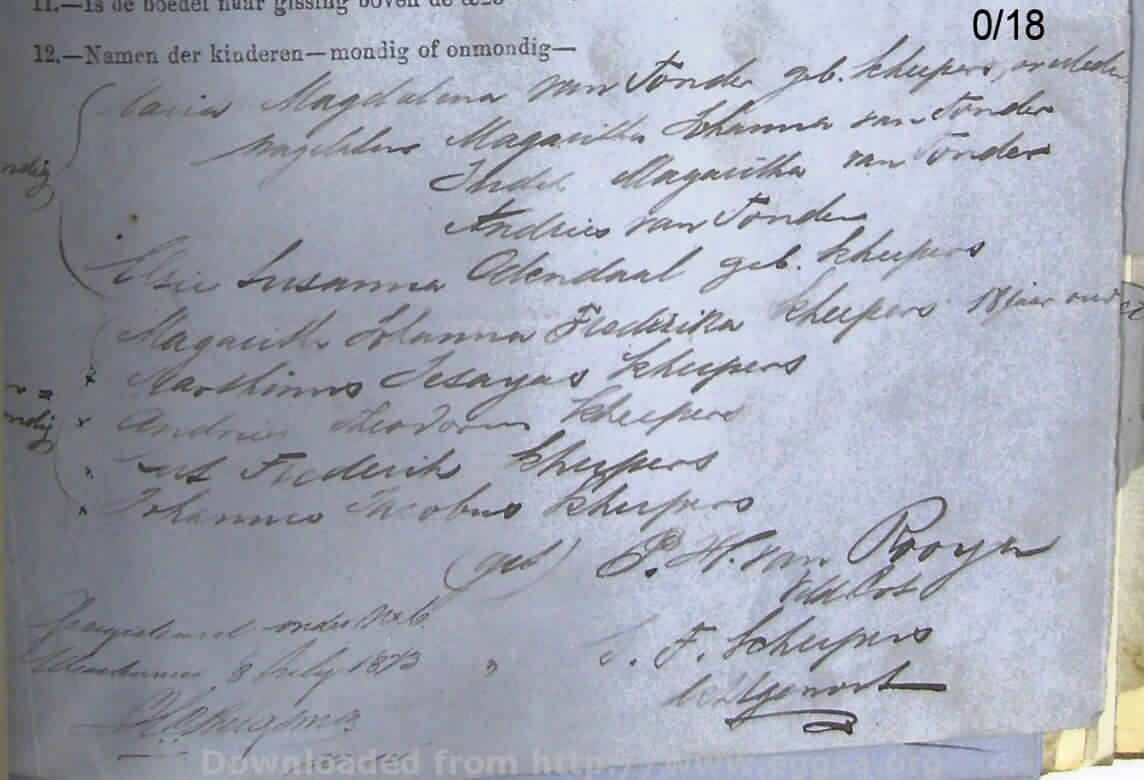 0/18
11.—Is de boedel naar gissing boven de
12.—Namen der kinderen—mondig of onmondig—
Maria Magdalena van Tonder geb. Scheepers, overleden
nagelaten Magaritha Johanna van Tonder
ndig
Magaritha van Tonder
Andries van Tonder
Elsie Susanna Odendaal geb. Scheepers
Magaritha Johanna Frederika Scheepers 18 jaar oud
x Marthinus Jesayas Scheepers
ndig x Andries Theodorus Scheepers
Frederik Scheepers
x Johannes Jacobus Scheepers
(get) P. H. van Rooyen
Veld Cort
Geregistreerd onder No 6
8 July 1873 " S. F. Scheepers
Echtgenoot
Downloaded from http://www.eggsa.org